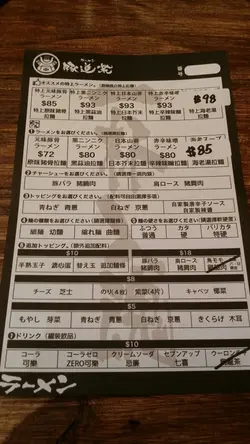 豚道楽
オススメの特上ラーメン。
元味豚骨
ラーメン
$85
特上原味豬骨
拉麵
特上黒ニンニク
ラーメン
$93
特上黑蒜油
拉麵
特上日本山葵
ラーメン
$93
特上日本芥末
拉麵
特上赤辛味噌
ラーメン
$93
特上辛辣辣麵
拉麵
$98
特上海老湯
拉麵
1 ラーメンをお選びください。(請選擇拉麵)
元味豚骨
ラーメン
$72
原味豬骨拉麵
黒ニンニク
ラーメン
$80
黑蒜油拉麵
日本山葵
ラーメン
$80
日本芥末拉麵
赤辛味噌
ラーメン
$80
辛辣辣麵拉麵
海老スープ
$85
海老湯拉麵
2 チャーシューをお選びください
豚バラ 豬腩肉
肩ロース 豬肩肉
3 トッピングをお選びください
青ねぎ 青蔥
白ねぎ 京蔥
自家製唐辛子ソース
自家製辣醬
4 麺の種類をお選びください
細麺 幼麵
縮れ麺 曲麵
5 麺の硬さをお選びください
ふつう
普通
カタ
硬
バリカタ
特硬
6 追加トッピング。(額外追加配料)
$10
$18
半熟玉子 溏心蛋
替え玉 追加麵條
豚バラ
豬腩肉
肩ロース
豬肩肉
$8
チーズ 芝士
のり(4枚) 紫菜(4片)
キャベツ 椰菜
$5
もやし 芽菜
青ねぎ 青蔥
白ねぎ 京蔥
きくらげ 木耳
7 ドリンク(罐裝飲品)
$10
コーラ
可樂
コーラゼロ
ZERO可樂
クリームソーダ
忌廉
セブンアップ
七喜
ウーロン
烏龍茶
ラーメン